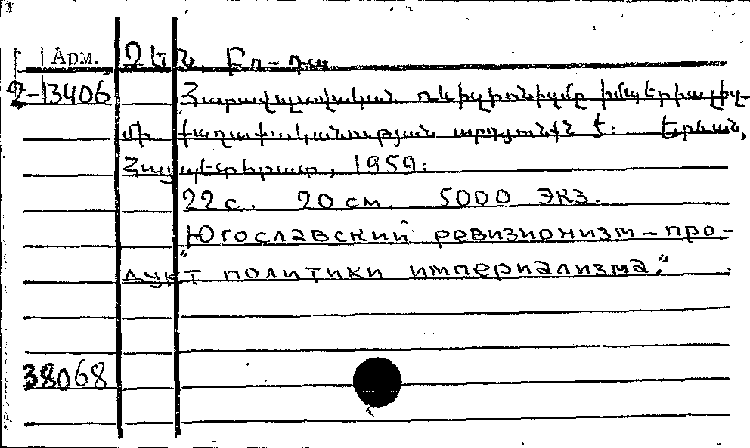 Арм. Չեն, Բո-դա
Չ-13406 Հարավսլավական ռևիզիոնիզմը իմպերիալիզ-
մի քաղաքականության արդյունքն է: Երևան,
Հայպետհրատ, 1959:
22 с. 20 см. 5000 экз.
"Югославский ревизионизм – про-
дукт политики империализма."
38068